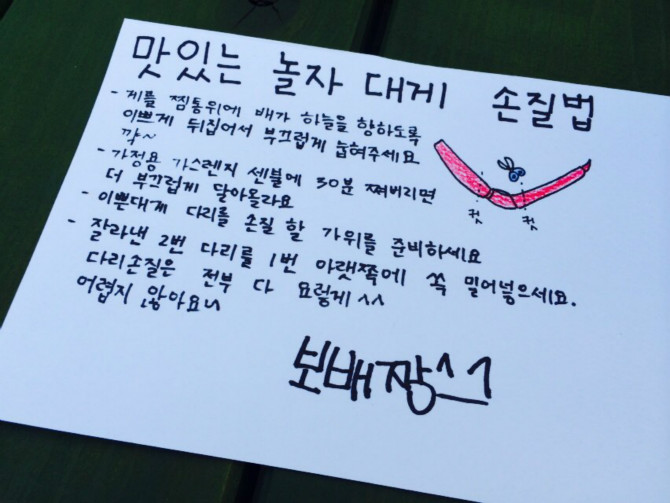 맛있는 놀자 대게 손질법
- 게를 찜통위에 배가 하늘을 향하도록
이쁘게 뒤집어서 부끄럽게 눕혀주세요
꺅~
- 가정용 가스렌지 센불에 30분 쪄버리면
더 부끄럽게 달아올라요
- 이쁜대게 다리를 손질 할 가위를 준비하세요
- 잘라낸 2번 다리를 1번 아랫쪽에 쏙 밀어넣으세요.
다리손질은 전부 다 요렇게 ^^
어렵지 않아요~
컷 컷
보배짱^^